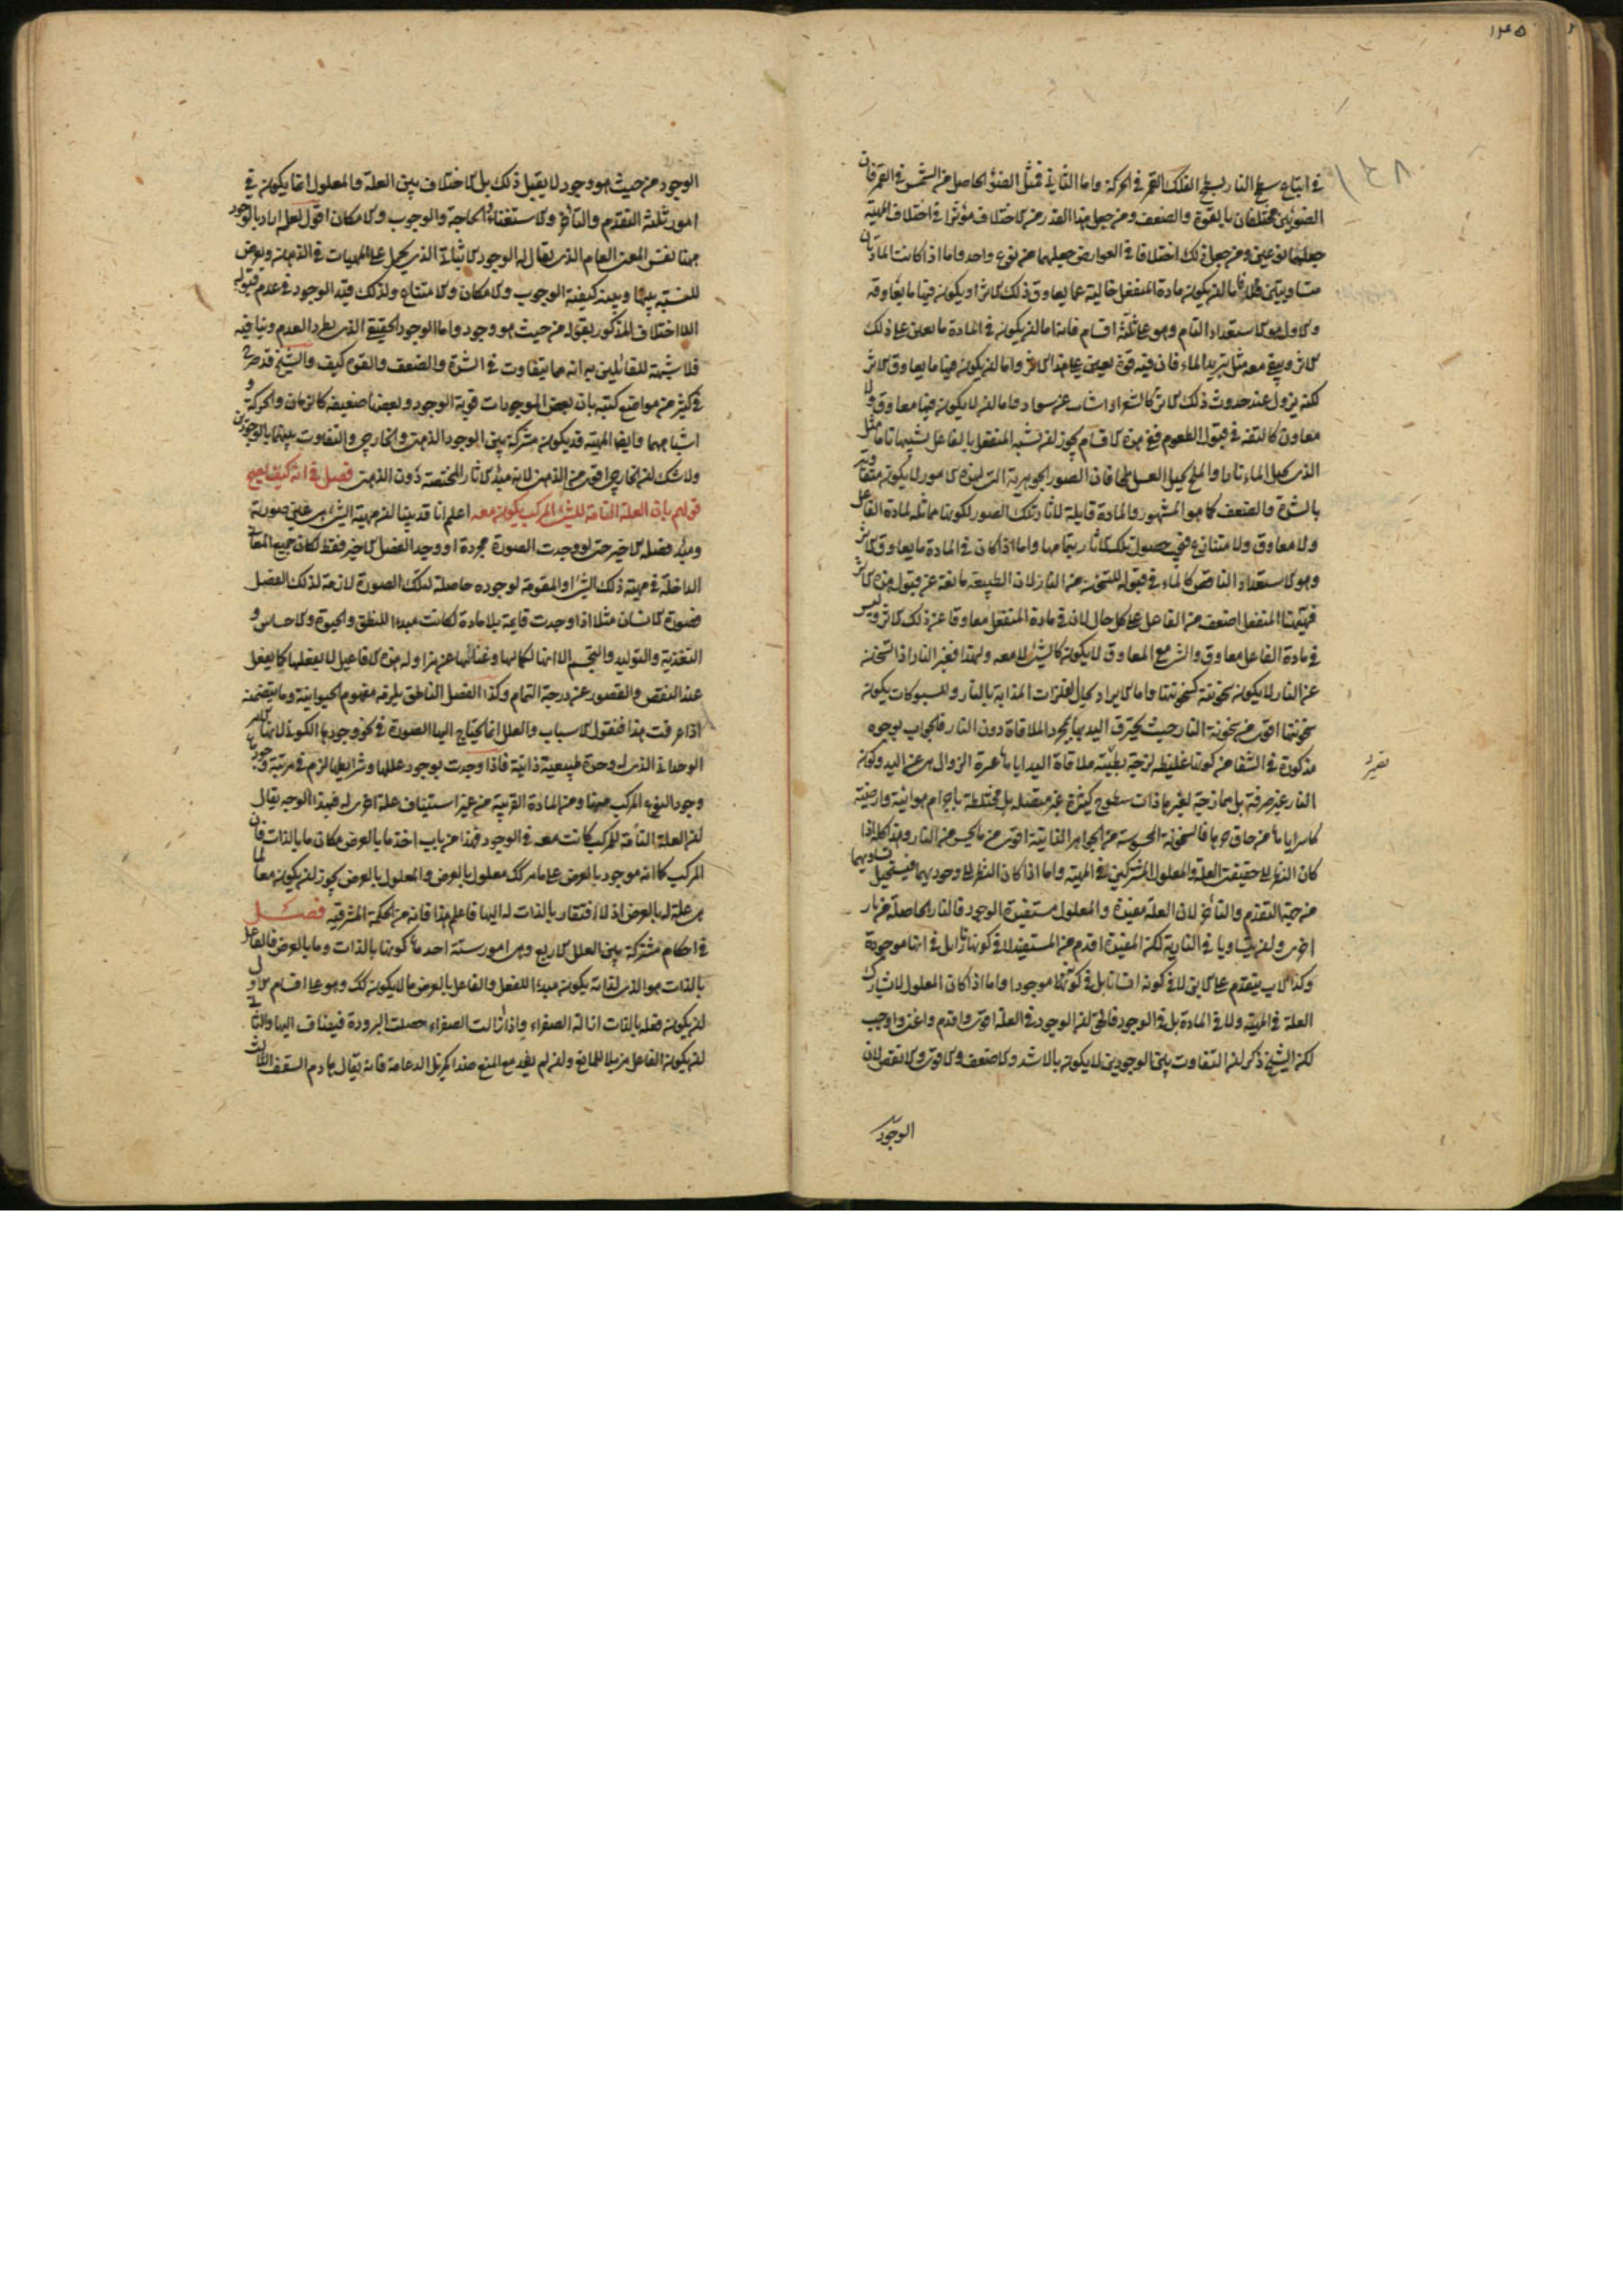 ١٢٤٥
في اتباع سطح النار لسطح الفلك القمر في الحركة واما الثاني فمثل الضوء الحاصل من الشمس في القمر فان
الضوئين مختلفان بالقوة والضعف ومن جعل هذا القدر من الاختلاف مؤثرا في اختلاف المهية
جعلهما نوعين ومن جعل ذلك اختلافا في العوارض جعلهما من نوع واحد واما اذا كانت المادتان
متساويتين فلا اما ان يكون مادة المنفعل خالية عما يعاوق ذلك الاثر او يكون فيها ما يعاوقه
والاول هو الاستعداد التام وهو على ثلثة اقسام فانه اما ان يكون في المادة ما يعين على ذلك
الاثر ويبقى معه مثل تبريد الماء فان فيه قوة يعين على هذا الاثر واما ان يكون فيها ما يعاوق الاثر
لكنه يزول عند حدوث ذلك الاثر كالشعر اذا شاب عن سواد واما ان لا يكون فيها معاوق ولا
معاون كالتفه في قبول الطعوم ففي هذه الاقسام يجوز ان تشبه المنفعل بالفاعل تشبها تاما مثل
النار يحيل الماء نارا والملح يحيل العسل ملحا فان الصور الجوهرية التي لهذه الامور لا يكون متفاوتة
بالشدة والضعف كما هو المشهور والمادة قابلة لاثار تلك الصور لكونها مماثلة لمادة الفاعل
ولا معاوق ولا منازع فيتحصل تلك الاثار بتمامها واما اذا كان في المادة ما يعاوق الاثر
وهو الاستعداد الناقص كالماء في قبوله للتسخن من النار لان الطبيعة مانعة عن قبول هذه الاثر
فههنا المنفعل اضعف من الفاعل على كل حال لان في مادة المنفعل معاوقا عن ذلك الاثر وليس
في مادة الفاعل معاوق والشيء مع المعاوق لا يكون كالشيء لا معه ولهذا فغير النار اذا تسخن
عن النار لا يكون سخونته كسخونتها واما الايراد بحال الفلزات المذابة بالنار والمسبوكات يكون
سخونتها اقوى من سخونة النار حيث يحترق اليد بها بمجرد الملاقاة دون النار فالجواب بوجوه
مذكورة في الشفا من كونها غليظة لزجة بطيئة ملاقاة اليد اياها عسرة الزوال عن اليد وكون
النار غير صرفة بل ممازجة لغيرها ذات سطوح كثيرة غير متصلة بل مختلطة باجرام هوائية وارضية
كاسرة اياها عن حاق حرها فالسخونة المحسوسة من الجواهر الذائبة اقوى من ما يحس من النار وهذا كله اذا
كان النظر الى حقيقة العلة والمعلول المشتركين في المهية واما اذا كان النظر الى وجوديهما فيستحيل تساويهما
من جهة التقدم والتأخر لان العلة مفيدة والمعلول مستفيد الوجود فالنار الحاصلة من نار
اخرى وان تساويا في النارية لكن المفيدة اقدم من المستفيد لا في كونها نارا بل في انها موجودة
وكذا الاب يتقدم على الابن لا في كونه انسانا بل في كونهما موجودا واما اذا كان المعلول لا يشارك
العلة في المهية ولا في المادة بل في الوجود فالحق ان الوجود في العلة اقوى واقدم واغنى واوجب
لكن الشيخ ذكر ان التفاوت بين الوجودين لا يكون بالاشد والاضعف والاقوى والانقص لان
الوجود
الوجود من حيث هو وجود لا يقبل ذلك بل الاختلاف بين العلة والمعلول انما يكون في
امور ثلثة التقدم والتأخر والاستغناء والحاجة والوجوب والامكان اقول لعله اراد بالوجود
ههنا نفس المعنى العام الذي يقال له الوجود الاثباتي الذي يحمل على المهيات في الذهن ويعرض
للنسبة بينها وبينه كيفية الوجوب والامكان والامتناع ولذلك قيد الوجود في عدم قبوله
الاختلاف المذكور بقوله من حيث هو وجود واما الوجود الحقيقي الذي يطرد العدم وينافيه
فلا شبهة للقائلين به انه مما يتفاوت في الشدة والضعف والقوة كيف والشيخ قد صرح
في كثير من مواضع كتبه بان بعض الموجودات قوية الوجود وبعضها ضعيفه كالزمان والحركة و
اشباههما وايضا المهية قد يكون مشتركة بين الوجود الذهني والخارجي والتفاوت بينهما بالوجودين
ولا شك ان الخارجي اقوى من الذهني لانه مبدء الاثار المختصة دون الذهني فصل في انه كيف يصح
قولهم بان العلة التامة للشيء المركب يكون معه اعلم انا قد بينا ان مهية الشيء هي عين صورته
ومبدء فصله الاخير حتى لو وجدت الصورة مجردة او وجد الفصل الاخير فقط لكان جميع المعاني
الداخلة في مهية ذلك الشيء او المقومة لوجوده حاصلة لتلك الصورة لازمة لذلك الفصل
فصورة الانسان مثلا اذا وجدت قايمة بلا مادة لكانت مبدءا للنطق والحيوة والاحساس و
التغذية والتوليد والتجسم الا انها لكمالها وغنائها عن مزاولة هذه الافاعيل لا يفعلها كما يفعل
عند النقص والقصور عن درجة التمام وكذا الفصل الناطق يلزمه مفهوم الحيوانية وما يتضمنه
اذا عرفت هذا فنقول الاسباب والعلل انما يحتاج اليها الصورة في نحو وجودها الكوني لانها الامر
الوحداني الذي له وحدة طبيعية ذاتية فاذا وجدت بوجود عللها وشرايطها لزم في مرتبة وجودها
وجود النوع المركب منها ومن المادة القريبة من غير استيناف علة اخرى له فبهذا الوجه يقال
ان العلة التامة للمركب كانت معه في الوجود فهذا من باب اخذ ما بالعرض مكان ما بالذات فان
المركب كما انه موجود بالعرض على ما مر كك معلول بالعرض والمعلول بالعرض يجوز ان يكون معا لما
هي علة له بالعرض اذ لا افتقار بالذات له اليها فاعلم هذا فانه من الحكمة المشرقية فصل
في احكام مشتركة بين العلل الاربع وهي امور ستة احدها كونها بالذات وما بالعرض فالفاعل
بالذات هو الذي لذاته يكون مبدءا للفعل والفاعل بالعرض ما لا يكون كك وهو على اقسام الاول
ان يكون فعله بالذات ازالة الصفراء واذا زالت الصفراء حصلت البرودة فيضاف اليها والثاني
ان يكون الفاعل مزيلا للمانع وان لم يفد مع المنع ضدا كمزيل الدعامة فانه يقال هادم السقف الثالث